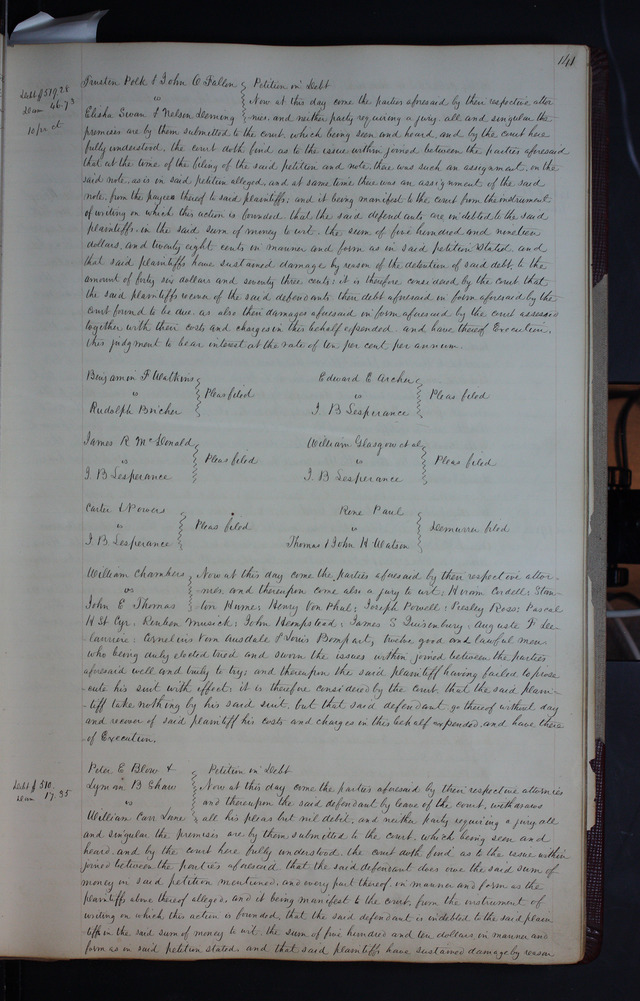 141
Debt $519.28
Dam 46.73
10/pr ct
Trusten Polk & John O Fallon Petition in Debt
vs Now at this day come the parties aforesaid by their respective attor
Elisha Swan & Nelson Deming nies, and neither party requiring a jury, all and singular the
premises are by them submitted to the court, which being seen and heard and by the court here
fully understood, the court doth find as to the issue within joined between the parties aforesaid
that at the time of the filing of the said petition and note, there was such an assignment, on the
said note, as is in said petition alleged, and at same time, there was an assignment of the said
note, from the payees thereof to said plaintiffs; and it being manifest to the court from the instrument
of writing on which this action is founded, that the said defendants are indebted to the said
plaintiffs in the said sum of money to wit. the sum of five hundred and nineteen
dollars and twenty eight cents in manner and form as in said petition stated and
that said plaintiffs have sustained damage by reason of the detention of said debt, to the
amount of forty six dollars and seventy three cents; it is therefore considered by the court that
the said plaintiffs recover of the said defendants their debt aforesaid in form aforesaid by the
court found to be due as also their damages aforesaid in form aforesaid by the court assessed
together with their costs and charges in this behalf expended and have thereof Execution,
this judgment to bear interest at the rate of ten per cent per annum.
Benjamin F Watkins
vs Pleas filed
Rudolph Bircher
Edward E Archer
vs Pleas filed
I. B Lesperance
James R McDonald
vs Pleas filed
I. B Lesperance
William Glasgow et al
vs Pleas filed
I. B Lesperance
Carter & Powers
vs Pleas filed
I. B Lesperance
Rene Paul
vs Demurrer filed
Thomas & John H Watson
William Chambers Now at this day come the parties aforesaid by their respective attor-
vs nies, and thereupon come also a jury to wit; Hiram Cordell; Stan-
John E Thomas ton Hume; Henry Von Phul; Joseph Powell; Presley Ross; Pascal
H St. Cyr; Reuben Musick; John Hempstead; James S Quisenbury; Auguste F
Cornelius Von Ausdale & Louis Bompart, twelve good and lawful men
who being duly elected tried and sworn the issues within joined between the parties
aforesaid well and truly to try; and thereupon the said plaintiff having failed to prose-
cute his suit with effect; it is therefore considered by the court, that the said plain-
tiff take nothing by his said suit, but that said defendant go thereof without day
and recover of said plaintiff his costs and charges in this behalf expended and have there
of Execution.
Debt $510.
Dam 17.85
Peter E Blow & Petition in Debt
Lyman B Shaw Now at this day come the parties aforesaid by their respective attornies
vs and thereupon the said defendant by leave of the court, withdraws
William Carr Lane all his pleas but nil debit, and neither party requiring a jury all
and singular the premises are by them submitted to the court. which being seen and
heard and by the court here fully understood, the court doth find as to the issue within
joined between the parties aforesaid that the said defendant does owe the said sum of
money in said petition mentioned, and every part thereof in manner and form as the
plaintiffs above thereof alleged, and it being manifest to the court, from the instrument of
writing on which this action is founded, that the said defendant is indebted to the said plain-
tiffs in the said sum of money to wit the sum of five hundred and ten dollars, in manner and
form as in said petition stated, and that said plaintiffs have sustained damage by reason